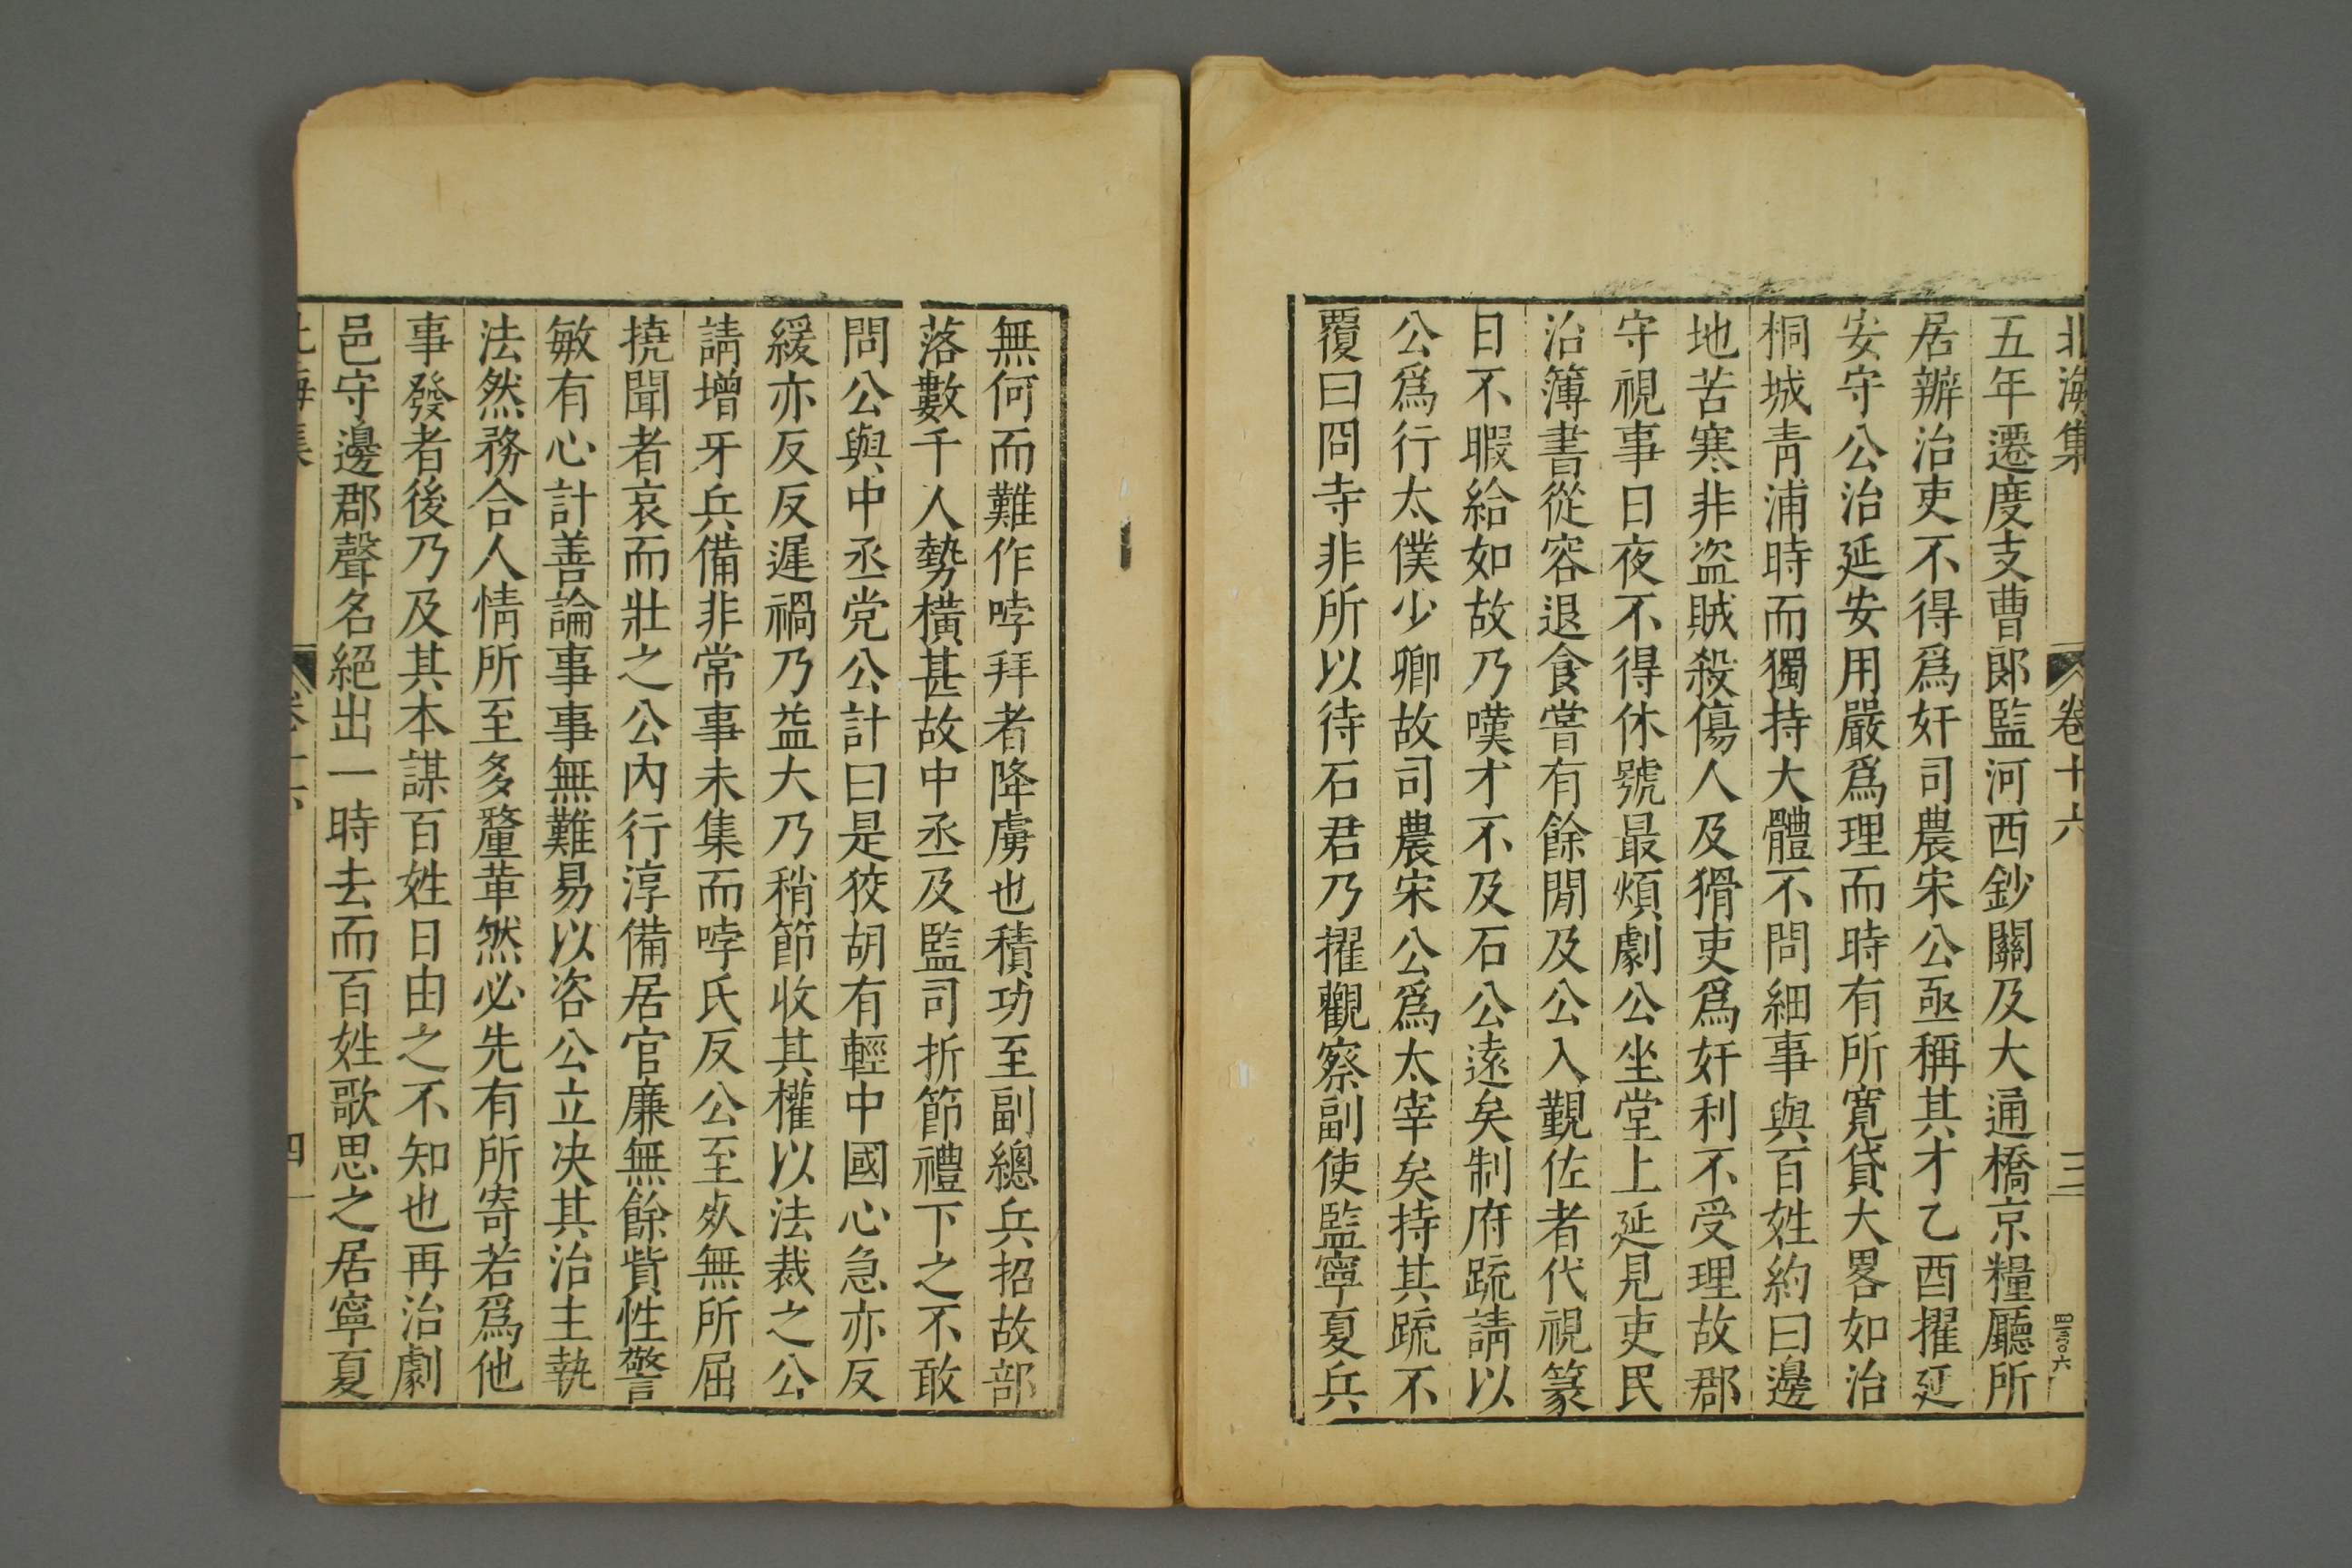 北海集 卷十六 三
五年遷度支曹郎監河西鈔關及大通橋京糧廳所
居辦治吏不得爲奸司農宋公亟稱其才乙酉擢延
安守公治延安用嚴爲理而時有所寛貸大畧如治
桐城青浦時而獨持大體不問細事與百姓約曰邊
地苦寒非盗賊殺傷人及猾吏爲奸利不受理故郡
守視事日夜不得休號最煩劇公坐堂上延見吏民
治簿書從容退食嘗有餘閒及公入覲佐者代視篆
日不暇給如故乃嘆才不及石公遠矣制府䟽請以
公爲行太僕少卿故司農宋公爲太宰矣持其䟽不
覆曰冏寺非所以待石君乃擢觀察副使監寧夏兵
無何而難作哱拜者降虜也積功至副總兵招故部
落數千人勢橫甚故中丞及監司折節禮下之不敢
問公與中丞党公計曰是狡胡有輕中國心急亦反
緩亦反反遲禍乃益大乃稍節收其權以法裁之公
請增牙兵備非常事未集而哱氏反公至死無所屈
撓聞者哀而壯之公內行淳備居官廉無餘貲性警
敏有心計善論事事無難易以咨公立決其治主執
法然務合人情所至多釐革然必先有所寄若爲他
事發者後乃及其本謀百姓日由之不知也再治劇
邑守邊郡聲名絕出一時去而百姓歌思之居寧夏
北海集 卷十六 四